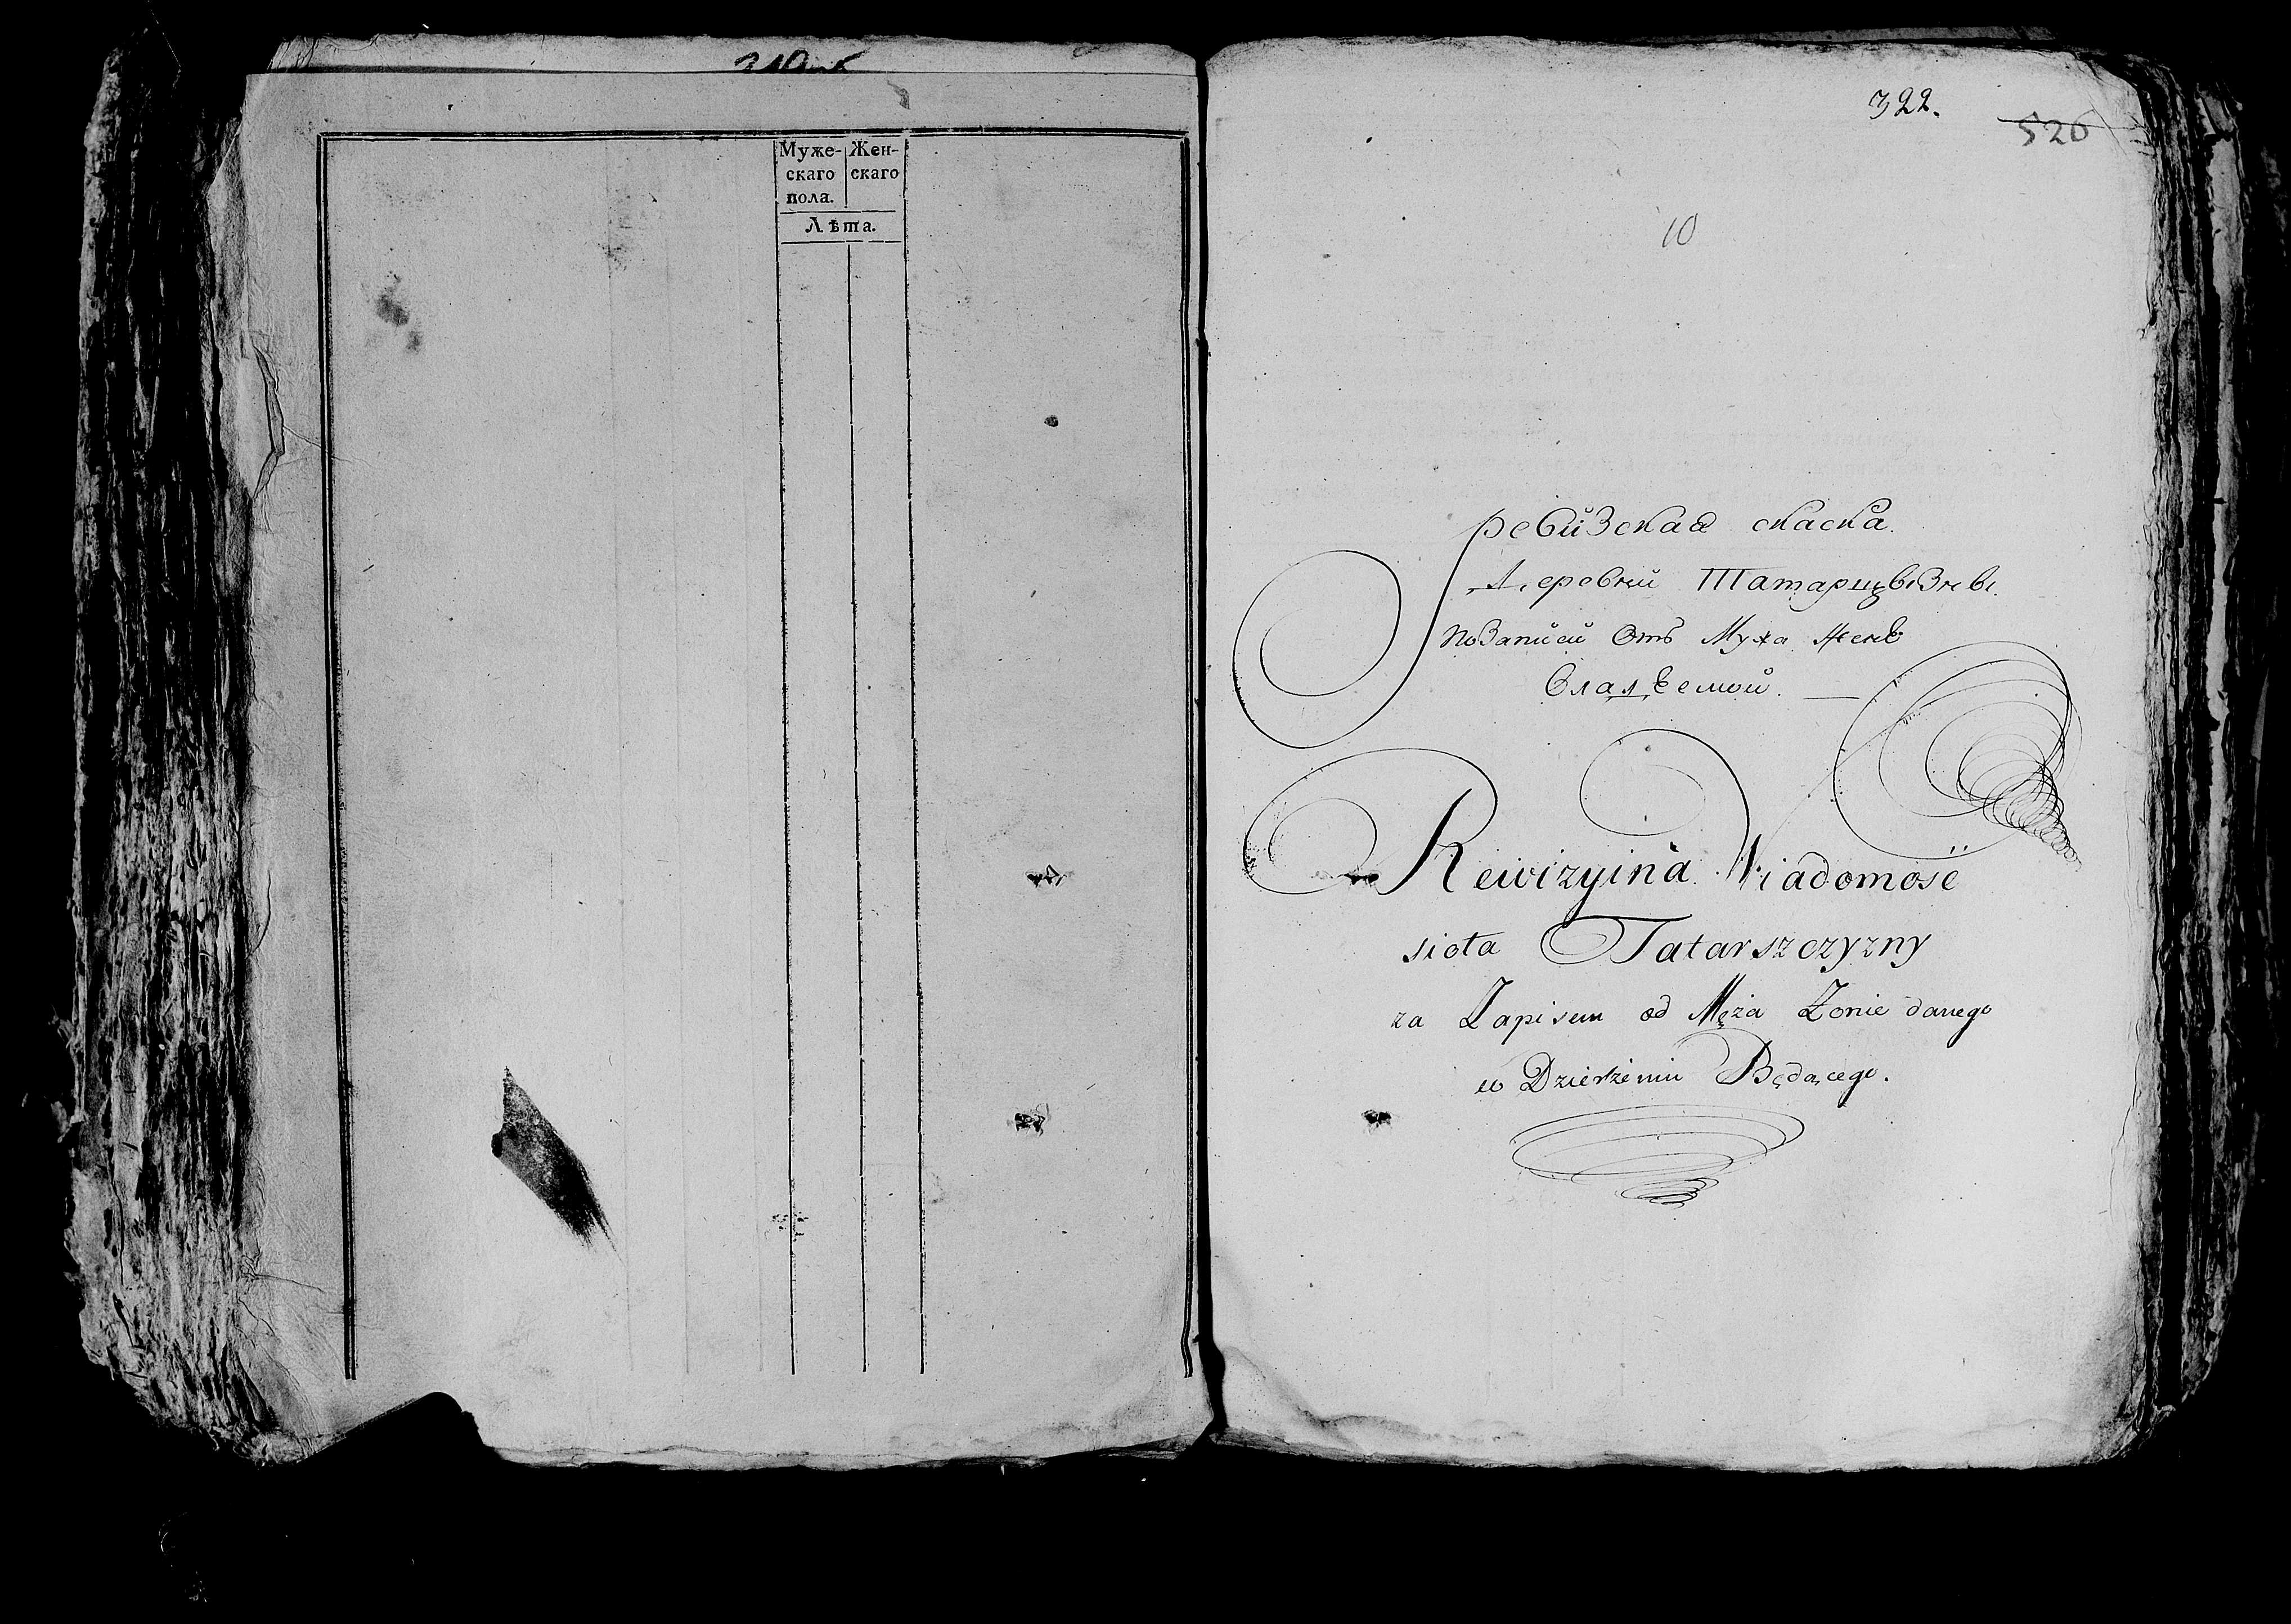 Муже- Жен-
скаго скаго
пола.
Лѣта.
322.
526
10
Ревизская скаска.
Деревни Татарщызны.
По Записи Отъ Мужа Женѣ
Владѣемой.
Rewizyina Wiadomosć
siola Tatarszczyzny
za Zapisem od Męża Żonie danego
w Dzierżeniu Będącego.